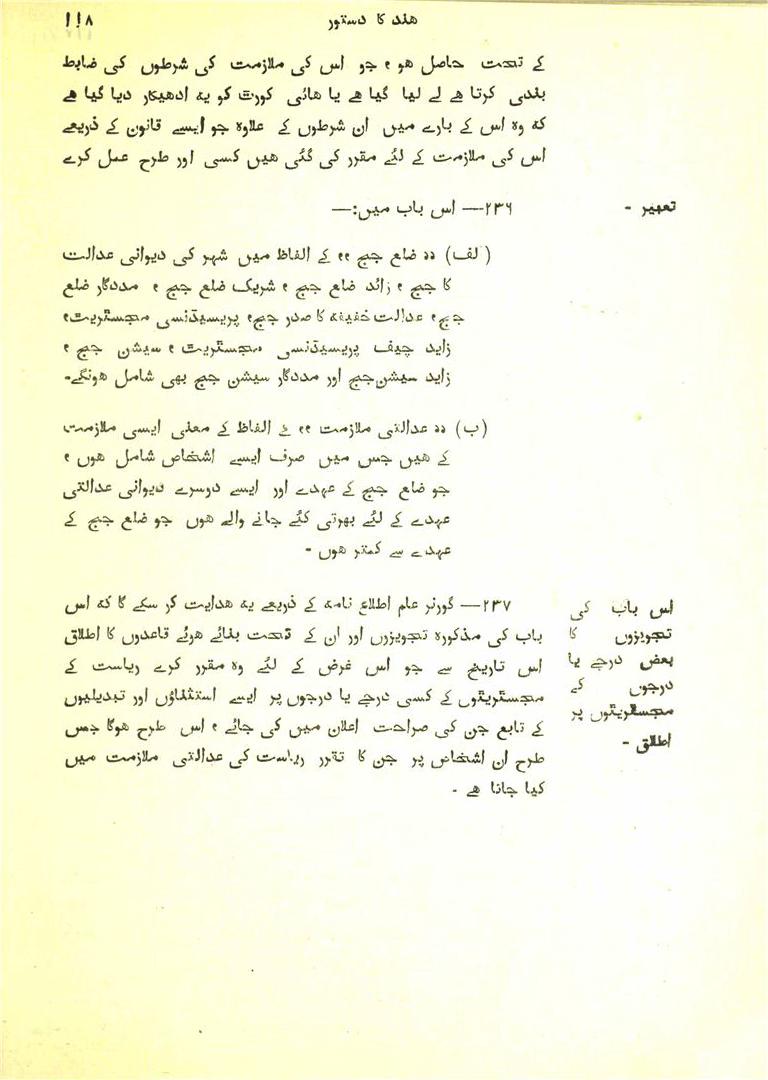 هند کا دستور
۱۱۸
کے تحت حاصل هو ، جو اس کی ملازمت کی شرطوں کی ضابطہ
بندی کرتا هے لے لیا گیا هے یا هائی کورٹ کو یه ادهیکار دیا گیا هے
که وہ اس کے بارے میں ان شرطوں کے علاوہ جو ایسے قانون کے ذریعے
اس کی ملازمت کے لئے مقرر کی گئی هیں کسی اور طرح عمل کرے
تعبیر -
۲۳۶— اس باب میں:—
(لف) ,, ضلع جج ,, کے الفاظ میں شہر کی دیوانی عدالت
کا جج ، زائد ضلع جج ، شریک ضلع جج ، مددگار ضلع
جج، عدالت خفیفه کا صدر جج، پریسیڈنسی مجسٹریٹ،
زاید چیف پریسیڈنسی مجسٹریٹ ، سیشن جج ،
زاید سیشن جج اور مددگار سیشن جج بھی شامل هونگے-
(ب) ,, عدالتی ملازمت ,, کے الفاظ کے معنی ایسی ملازمت
کے هیں جس میں صرف ایسے اشخاص شامل هوں ،
جو ضلع جج کے عہدے اور ایسے دوسرے دیوانی عدالتی
عہدے کے لئے بھرتی کئے جانے والے هوں جو ضلع جج کے
عہدے سے کمتر هوں -
اس باب کی
تجویزوں کا
بعض درجے یا
درجوں کے
مجسٹریٹوں پر
اطلاق -
۲۳۷— گورنر عام اطلاع نامه کے ذریعے یه هدایت کر سکے گا که اس
باب کی مذکورہ تجویزوں اور ان کے تحت بنائے هوئے قاعدوں کا اطلاق
اس تاریخ سے جو اس غرض کے لئے وہ مقرر کرے ریاست کے
مجسٹریٹوں کے کسی درجے یا درجوں پر ایسے استثناؤں اور تبدیلیوں
کے تابع جن کی صراحت اعلان میں کی جائے ، اس طرح هوگا جس
طرح ان اشخاص پر جن کا تقرر ریاست کی عدالتی ملازمت میں
کیا جاتا هے -